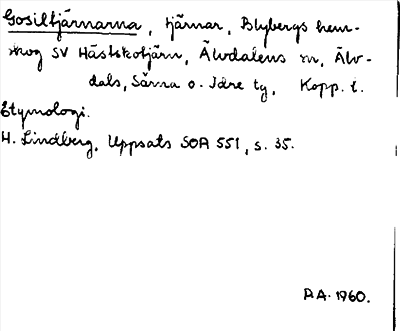 Gosiltjärnarna, tjärnar, Blybergs hem-
skog SV Hästskotjärn, Älvdalens sn, Älv-
dals, Särna o. Idre tg, Kopp. l.
Etymologi.
H. Lindberg, Uppsats SOA 551, s. 35.
R A. 1960.